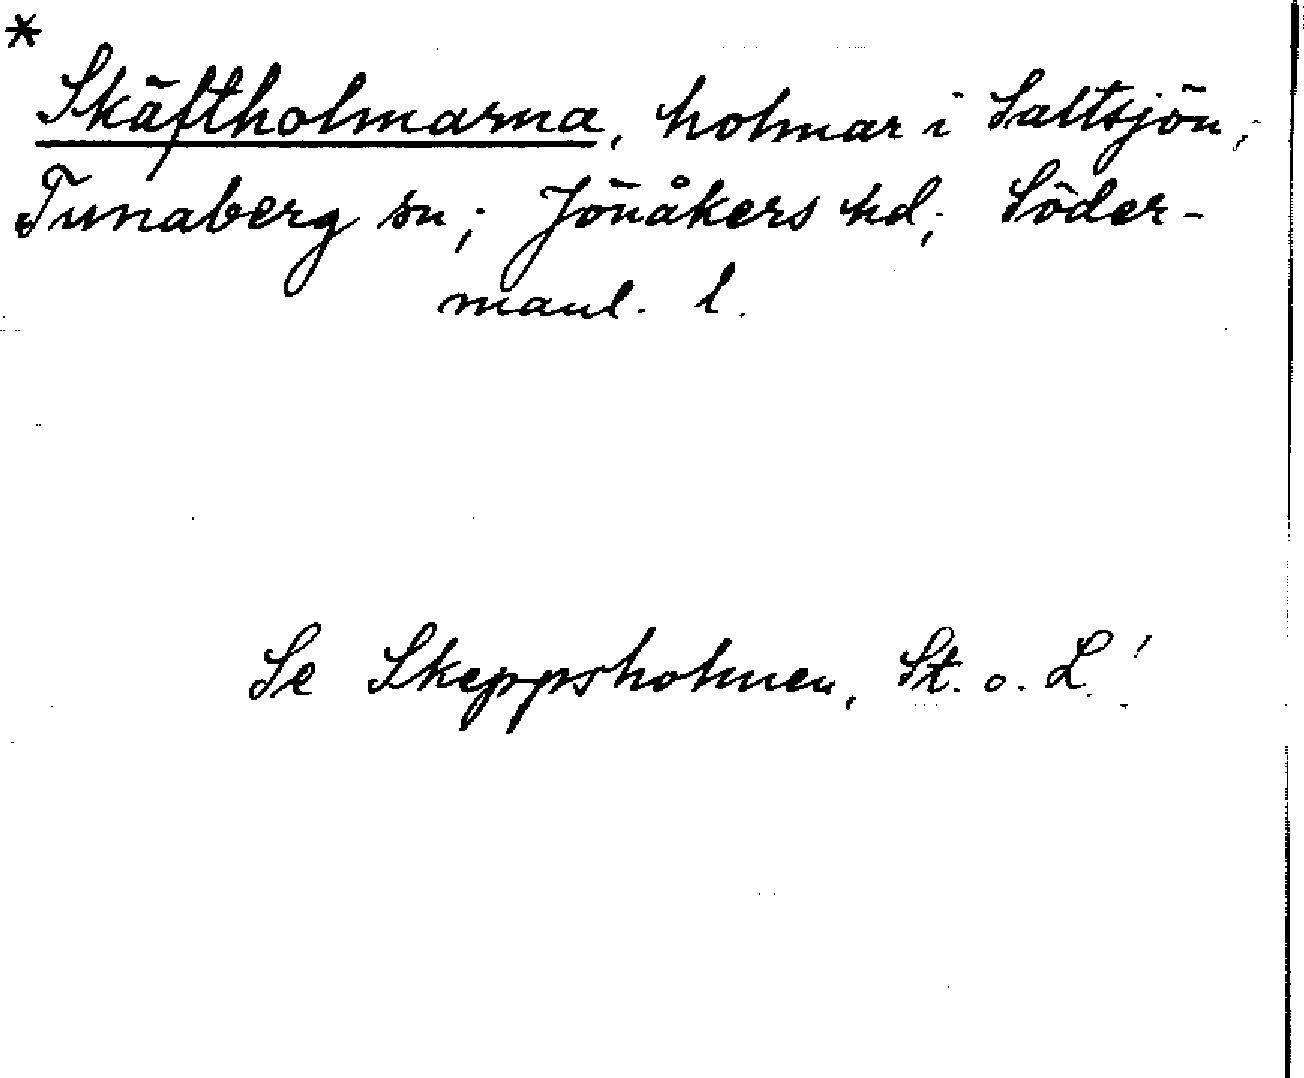 *
Skäftholmarna, holmar i Saltsjön,
Tunaberg sn; Jönåkers hd; Söder-
manl. l.
Se Skeppsholmen, St. o. L!